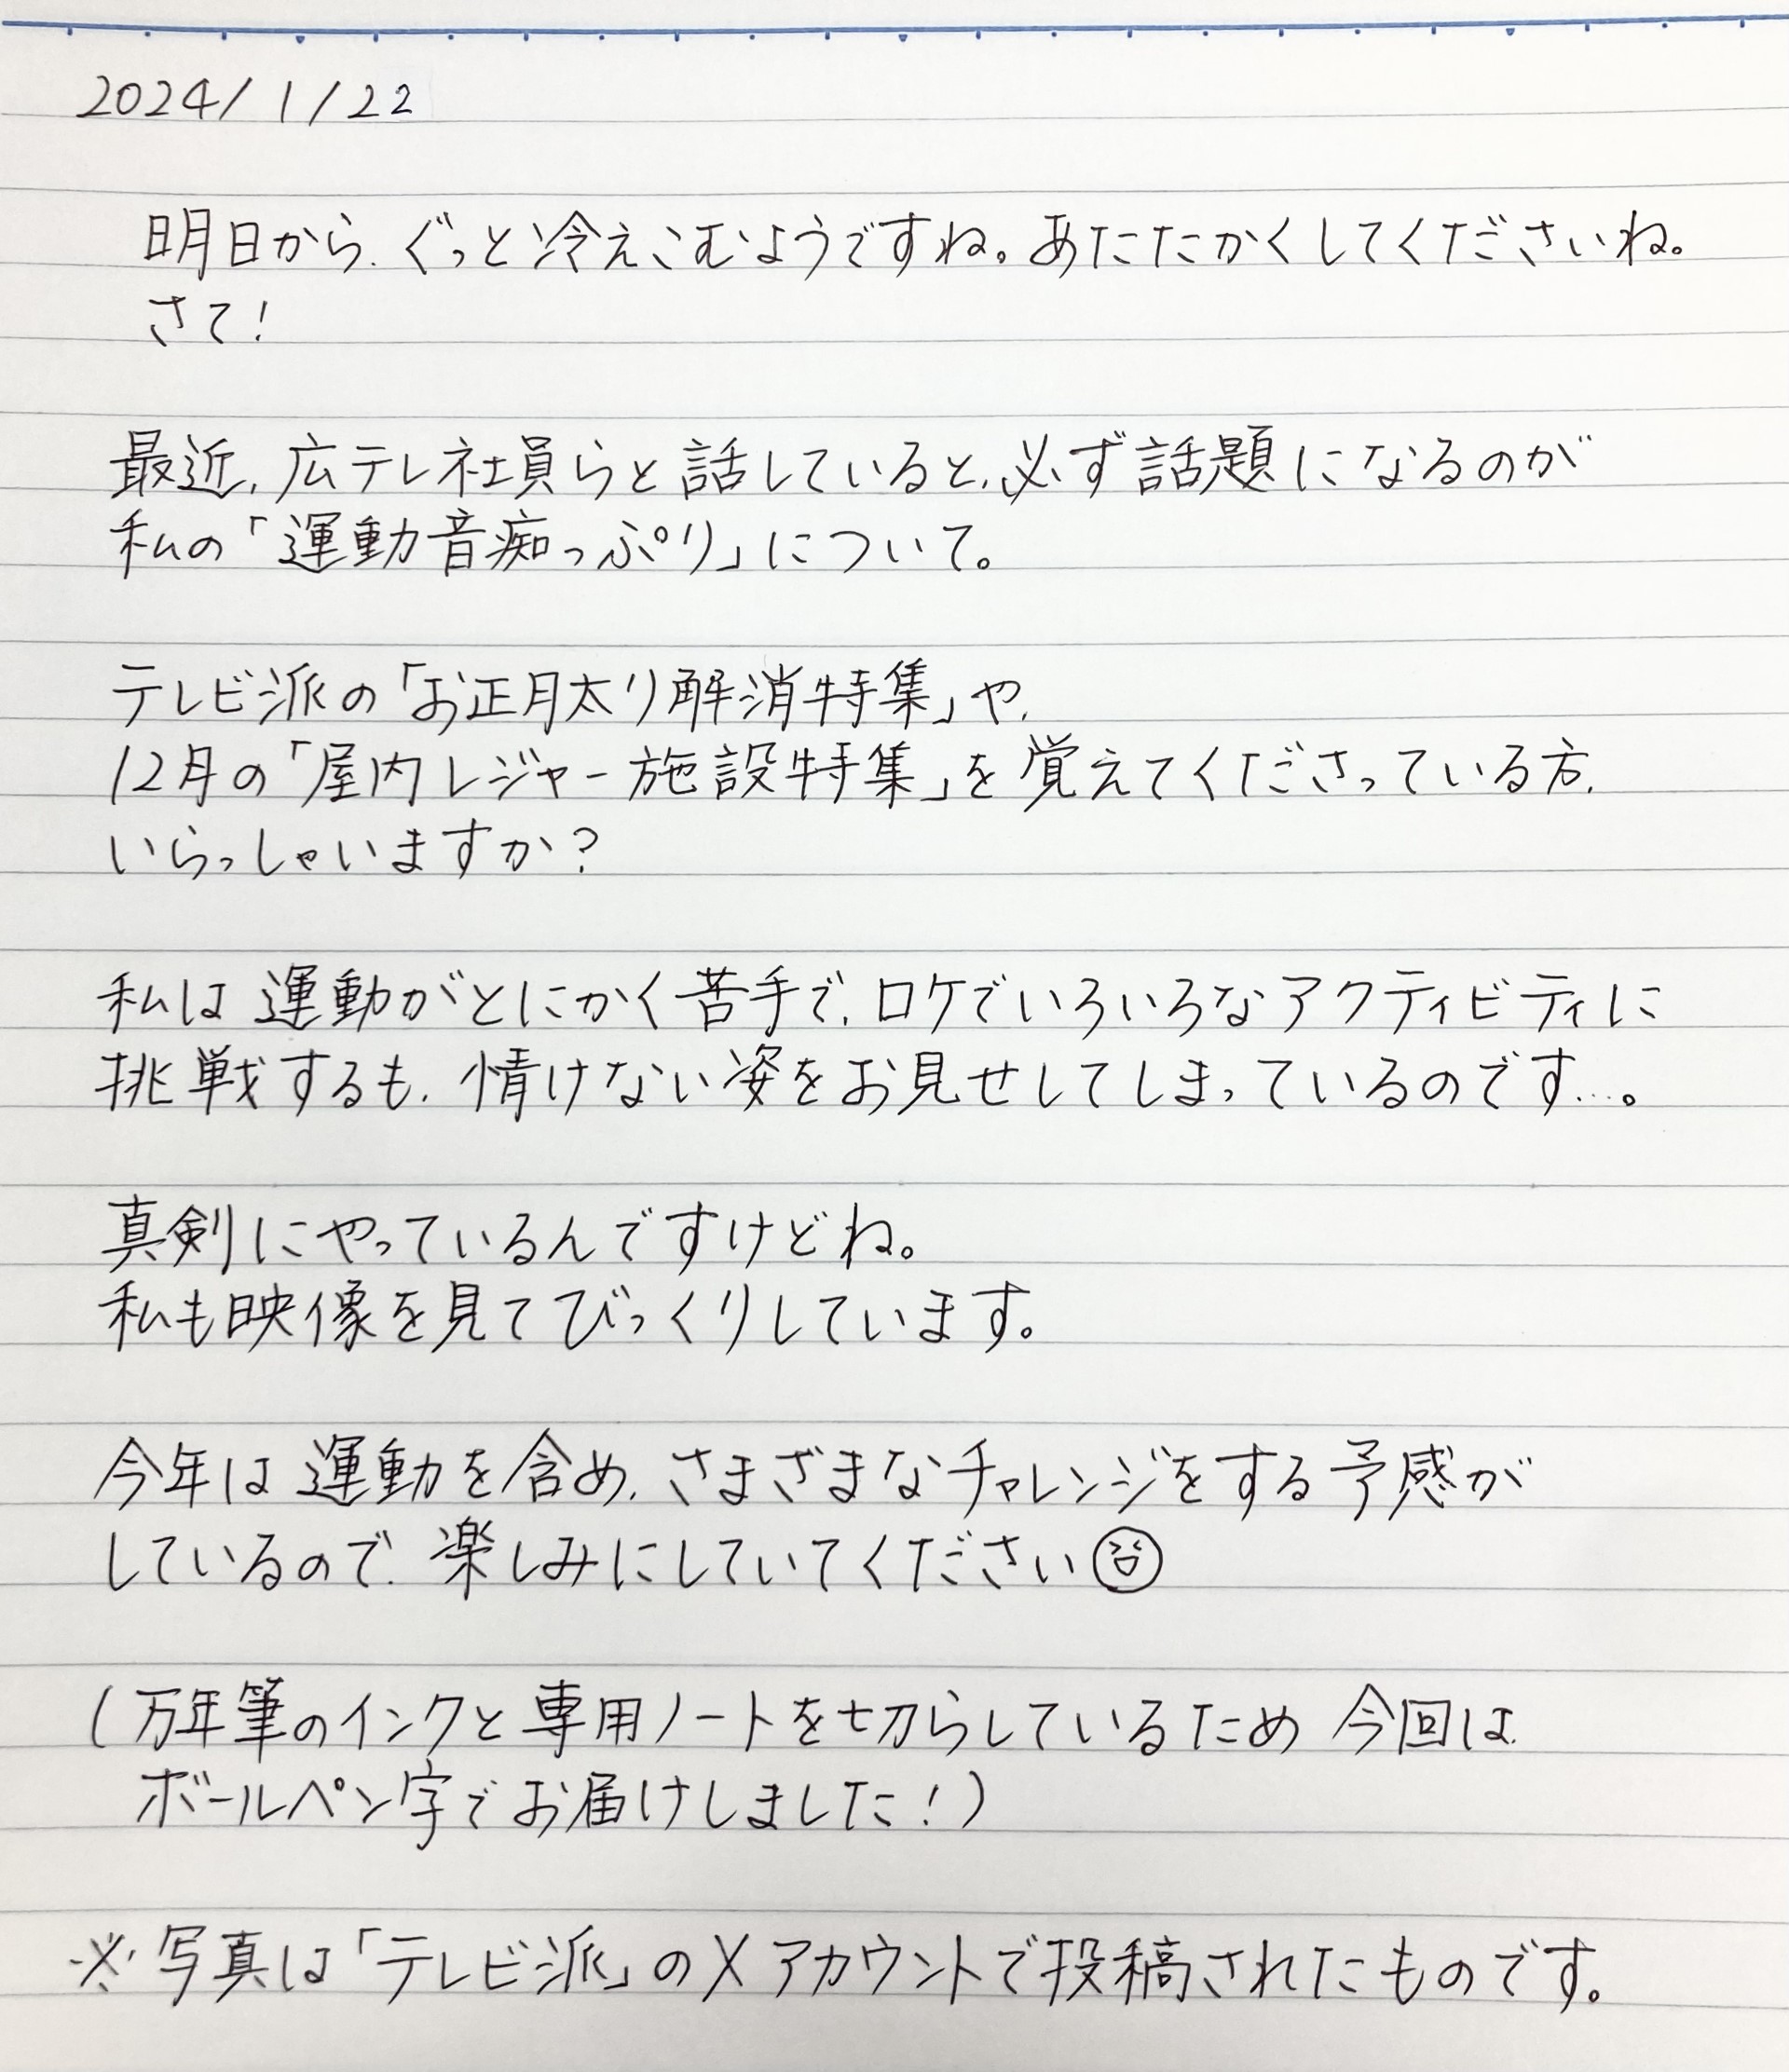 2024/1/22
明日から、ぐっと冷えこむようですね。あたたかくしてくださいね。
さて!
最近、広テレ社員らと話していると、必ず話題になるのが
私の「運動音痴っぷり」について。
テレビ派の「お正月太り解消特集」や、
12月の「屋内レジャー施設特集」を覚えてくださっている方、
いらっしゃいますか?
私は運動がとにかく苦手で、ロケでいろいろなアクティビティに
挑戦するも、情けない姿をお見せしてしまっているのです…。
真剣にやっているんですけどね。
私も映像を見てびっくりしています。
今年は運動を含め、さまざまなチャレンジをする予感が
しているので、楽しみにしていてください
(万年筆のインクと専用ノートを切らしているため 今回は、
ボールペン字でお届けしました!)
※写真は「テレビ派」のXアカウントで投稿されたものです。